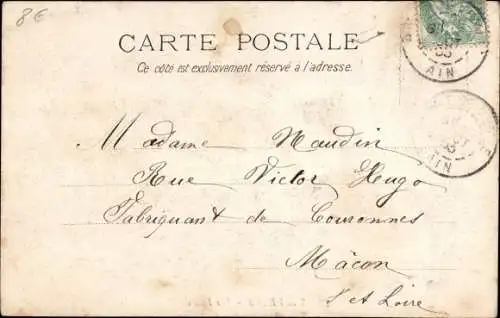 8€
CARTE POSTALE
Ce côté est exclusivement réservé à l'adresse.
AIN
AIN
Madame Naudin
Rue Victor Hugo
Fabriquant de Couronnes
Mâcon
S et Loire